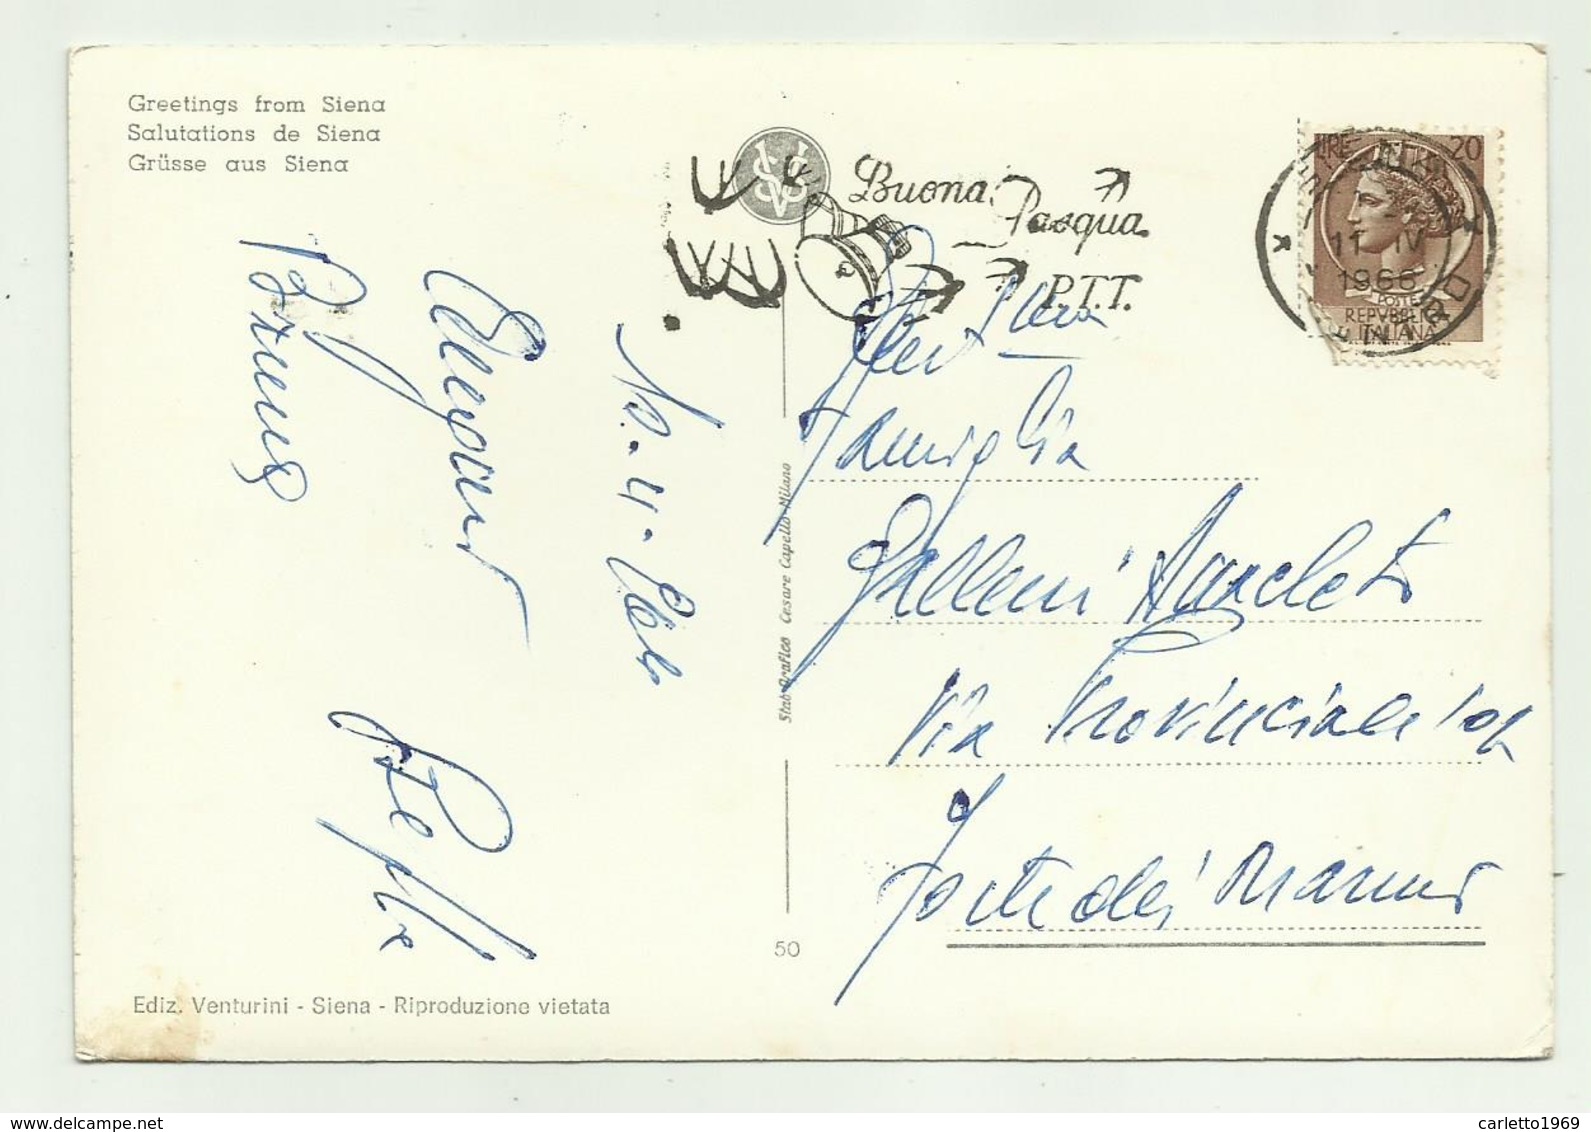 Greetings from Siena
Salutations de Siena
Grüsse aus Siena
Buona
Pasqua
P.T.T.
LIRE 20
11 IV
1966
POSTE
REPVBBLICA
ITALIANA
10-4-
Famiglia
Galleni Anacleto
Via Provinciale
Forte dei Marmi
Stab. Grafico Cesare Capello-Milano
50
Ediz. Venturini - Siena - Riproduzione vietata
carletto1969